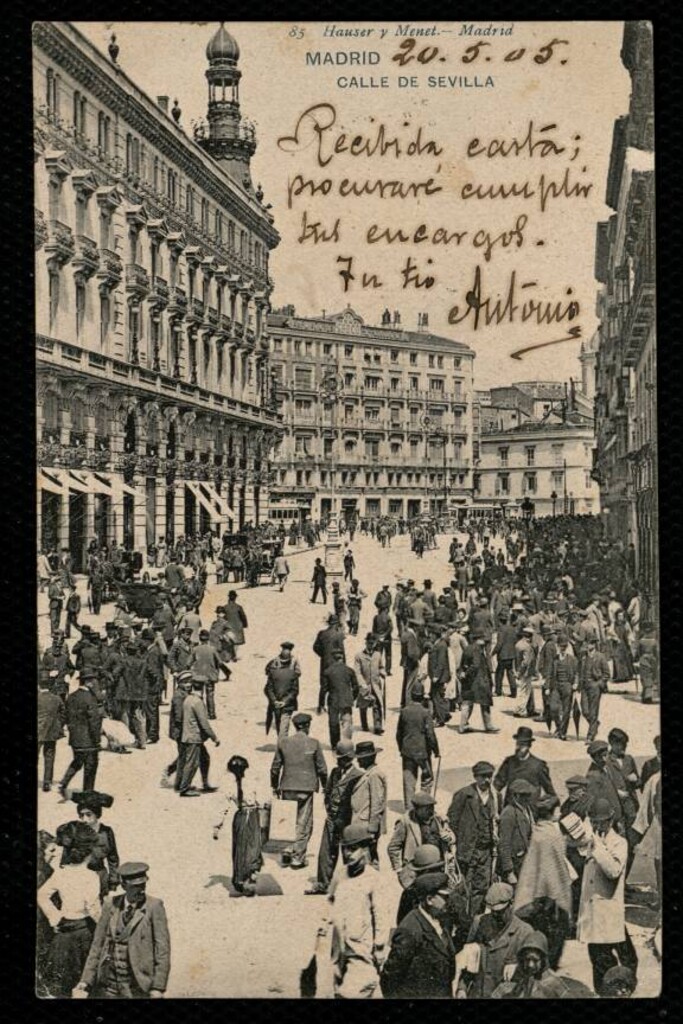 85 Hauser y Menet.- Madrid
MADRID 20.5.05.
CALLE DE SEVILLA
Recibida carta;
procuraré cumplir
tus encargos.
Tu tio
António